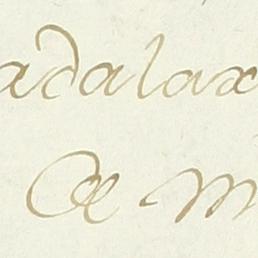 adalax
De m